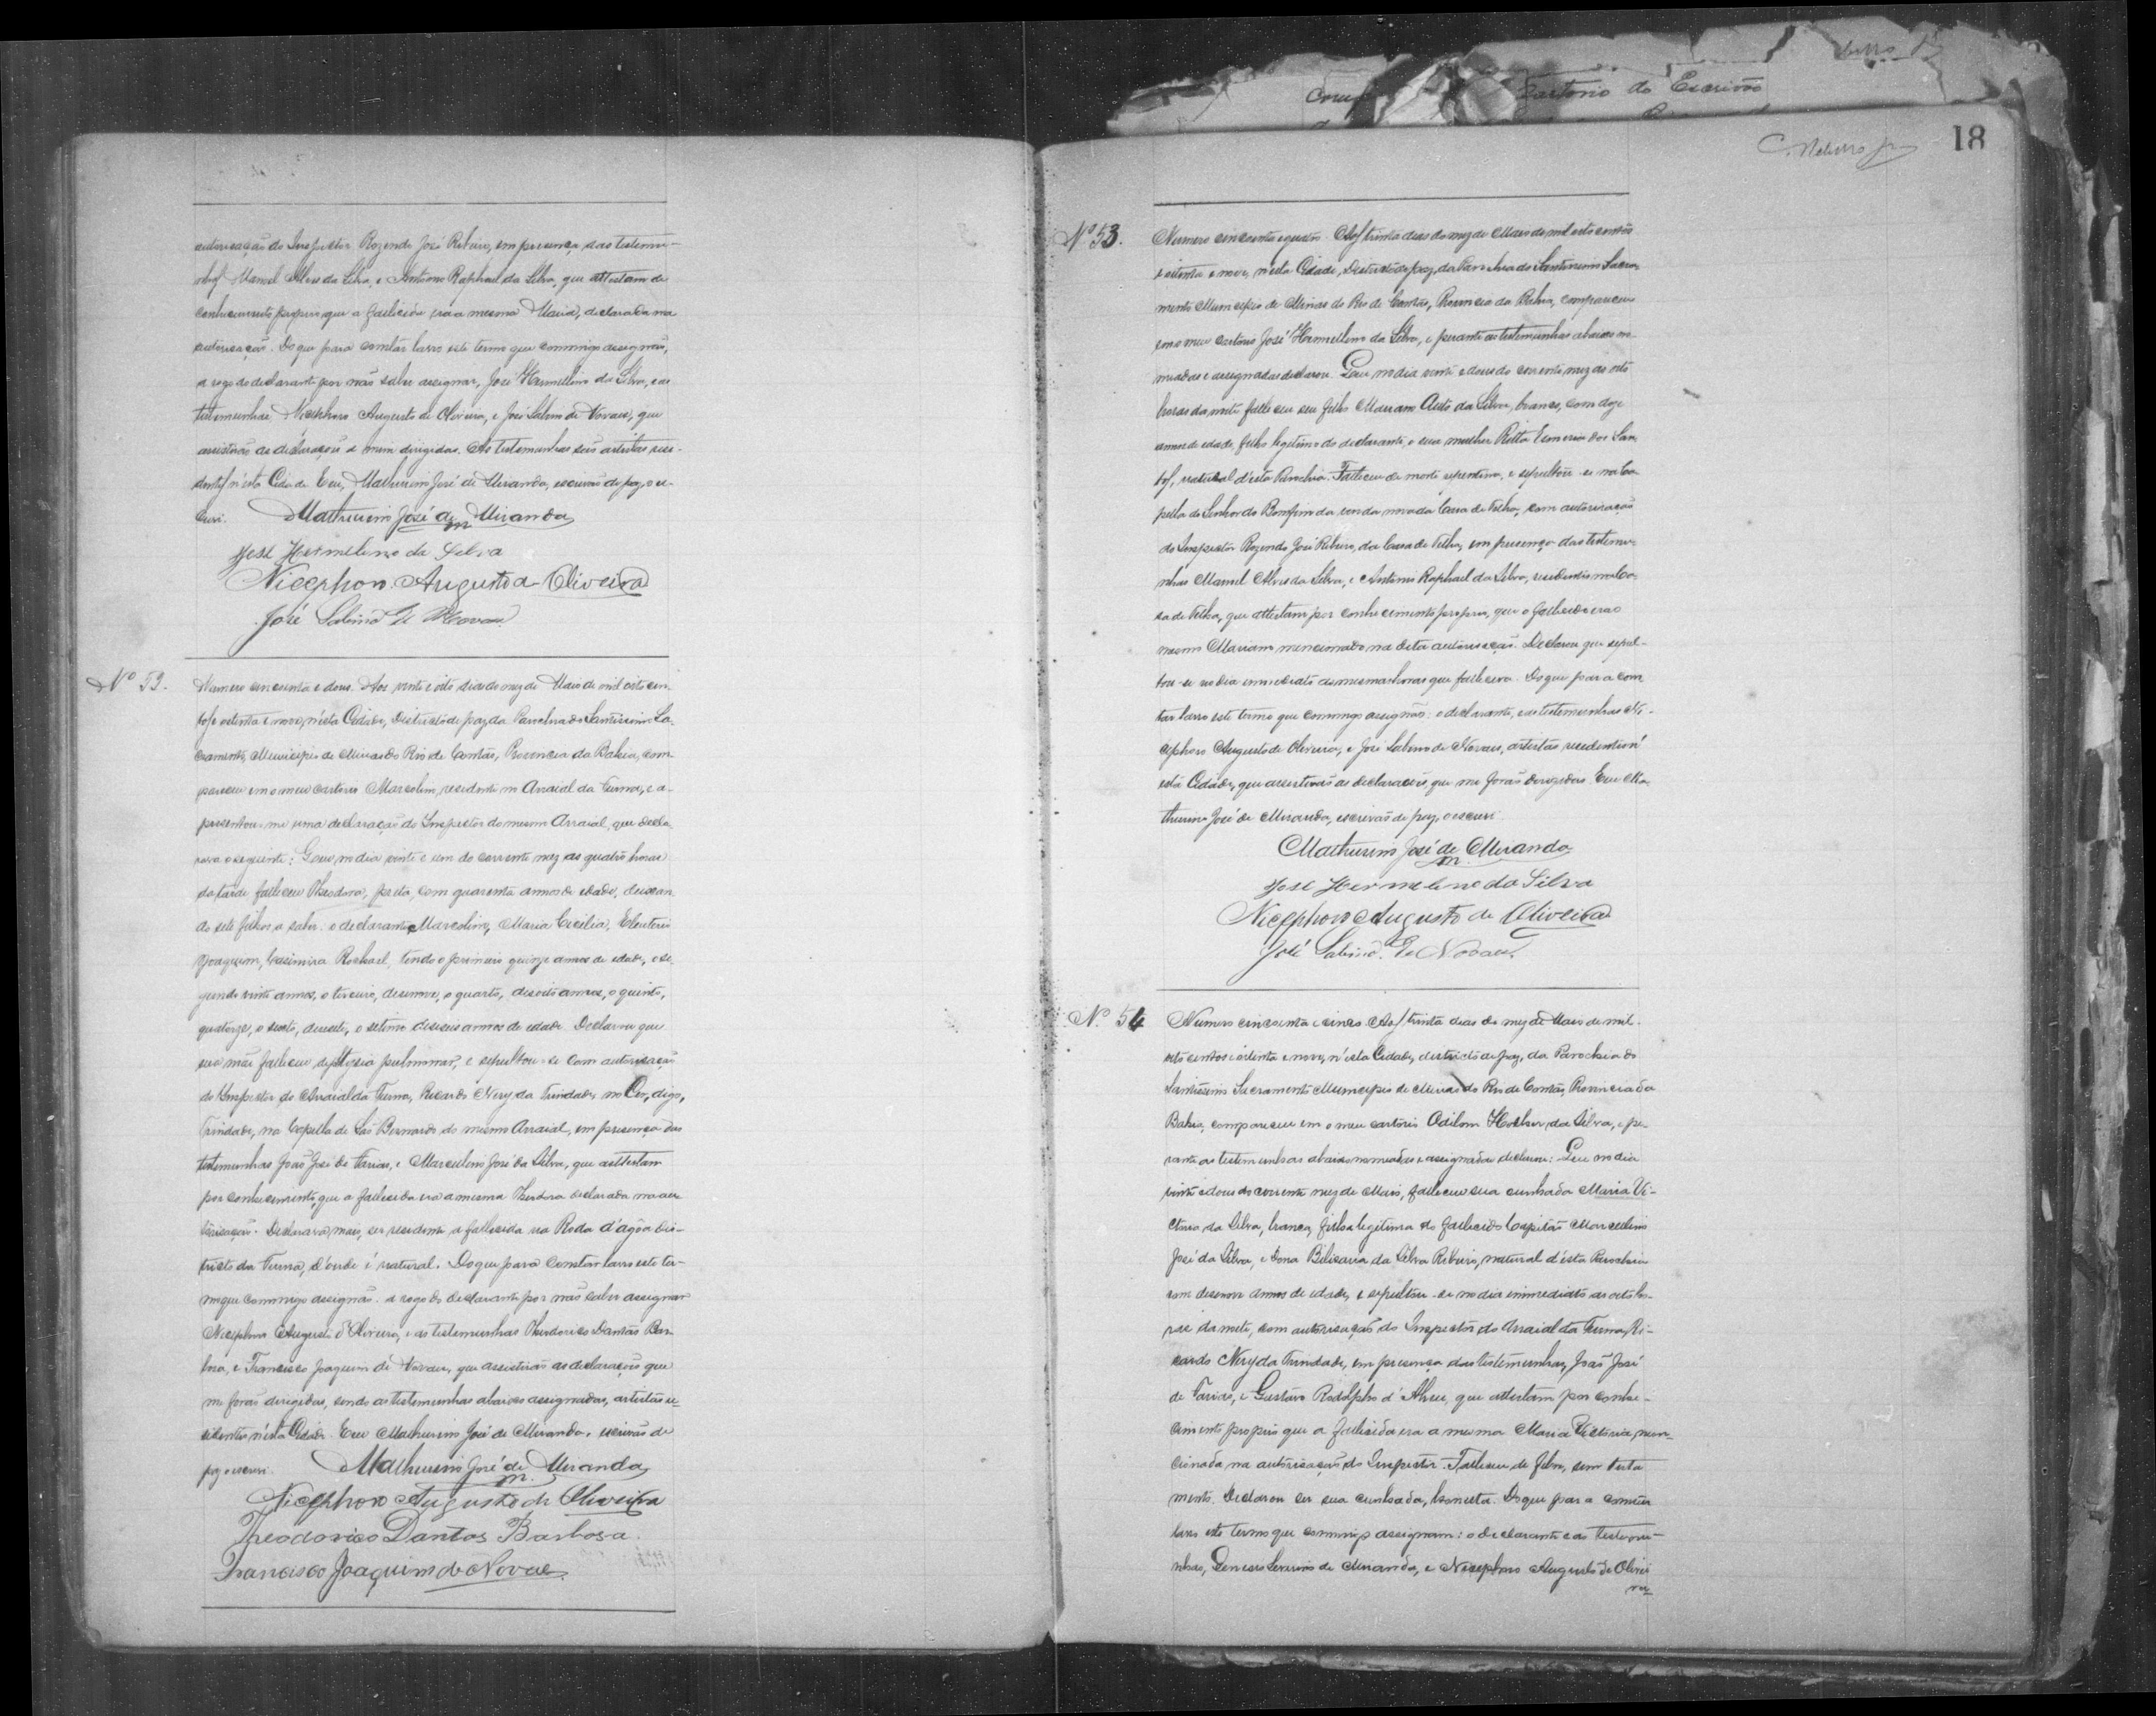 autorisação do Inspector Rozendo José Ribeiro, em presença das testemu-
nhas Manoel Alves da Silva, e Antonio Raphael da Silva, que attestam de
conhecimento proprio que a fallecida era a mesma Maria, declarada na
autorisação. Do que para constar lavro este termo que commigo assignão,
a rogo do declarante por não saber assignar, José Hermelino da Silva, e as
testemunhas Nicephoro Augusto de Oliveira, e José Sabino de Novaes, que
assistirão as declarações a mim dirigidas. As testemunhas são artistas resi-
dentes n'esta Cidade. Eu, Mathurino José de Miranda, escrivão de paz, o es-
crevi. Mathurino José de Miranda
José Hermelino da Silva
Nicephoro Augusto de Oliveira
José Sabino de Novaes
Nº 52.
Numero cincoenta e dous. Aos vinte e oito dias do mez de Maio de mil oito cen-
tos e oitenta e nove, n'esta Cidade, Districto de paz da Parochia do Santissimo Sa-
cramento, Municipio de Minas do Rio de Contas, Provincia da Bahia, com-
pareceu em o meu cartorio Marcolino, residente no Arraial da Furna, e a-
presentou-me uma declaração do Inspector do mesmo Arraial, que decla-
rava o seguinte: Que no dia vinte e um do corrente mez as quatro horas
da tarde falleceu Theodora, preta, com quarenta annos de idade, deixan-
do sete filhos, a saber: o declarante Marcolino, Maria Cicilia, Eleuterio
Joaquim, Casimira Rachael, tendo o primeiro quinze annos de edade, o se-
gundo vinte annos, o terceiro, desenove, o quarto, desoito annos, o quinto,
quatorze, o sexto, desesete, o setimo deseseis annos de edade. Declarou que
sua mãe falleceu de phtisia pulmonar, e sepultou-se com autorisação
do Inspector do Arraial da Furna, Ricardo Nery da Trindade, no Cor, digo,
Trindade, na Capella de São Bernardo do mesmo Arraial, em presença das
testemunhas João José de Farias, e Marcolino José da Silva, que attestam
por conhecimento, que a fallecida era a mesma Theodora declarada na au-
torisação. Declarara mais, ser residente a fallecida na Roda d'agôa Dis-
tricto da Furna, d'onde é natural. Do que para constar lavro este ter-
mo que commigo assignão. a rogo do declarante por não saber assignar
Nicephoro Augusto d'Oliveira, e as testemunhas Theodorico Dantas Bar-
bosa, e Francisco Joaquim de Novaes, que assistirão as declarações que
me forão dirigidas, sendo as testemunhas abaixo assignadas, artistas re-
sidentes n'esta Cidade. Eu Mathurino José de Miranda, escrivão de
paz o escrevi. Mathurino José de Miranda
Nicephoro Augusto de Oliveira
Theodorico Dantas Barbosa.
Francisco Joaquim de Novaes
Cartorio do Escrivão
18
Nº 53.
Numero cincoenta e quatro. Aos trinta dias do mez de Maio de mil oito centos
e oitenta e nove, n'esta Cidade, Districto de paz, da Parochia do Santissimo Sacra-
mento Municipio de Minas do Rio de Contas, Provincia da Bahia, compareceu
em o meu cartorio José Hermelino da Silva, e perante as testemunhas abaixo no-
meadas e assignadas declarou: Que no dia vinte e dous do corrente mez as oito
horas da noite falleceu seu filho Mariano Auto da Silva, branco, com doze
annos de edade, filho legitimo do declarante, e sua mulher Ritta Esmeria dos San-
tos, natural d'esta Parochia. Falleceu de morte repentina, e sepultou-se na Ca-
pella do Senhor do Bomfim da venda nova da Casa de Telha, com autorisação
do Inspector Rozendo José Ribeiro, da Casa de Telha, em presença das testemu-
nhas Manoel Alves da Silva, e Antonio Raphael da Silva, residentes na Ca-
sa de Telha, que attestam por conhecimento proprio, que o fallecido era o
mesmo Mariano mencionado na dita autorisação. Declarou que sepul-
tou-se no dia immediato as mesmas horas que fallecera. Do que para cons-
tar lavro este termo que commigo assignão: o declarante, e as testemunhas Ni-
cephoro Augusto de Oliveira, e José Sabino de Novaes, artistas residentes n'
esta Cidade, que assistirão as declarações, que me forão dirigidas. Eu Ma-
thurino José de Miranda, escrivão de paz, o escrevi.
Mathurino José de Miranda
José Hermelino da Silva
Nicephoro Augusto de Oliveira
José Sabino de Novaes.
Nº 54
Numero cincoenta e cinco. Aos trinta dias do mez de Maio de mil
oito centos e oitenta e nove, n'esta Cidade, districto de paz, da Parochia do
Santissimo Sacramento Municipio de Minas do Rio de Contas, Provincia da
Bahia, compareceu em o meu cartorio Odilom da Silva, e pe-
rante as testemunhas abaixo nomeadas e assignadas declarou: Que no dia
vinte e dous do corrente mez de Maio, falleceu sua cunhada Maria Vi-
ctoria da Silva, branca, filha legitima do fallecido Capitão Marcolino
José da Silva, e Dona Bilisaria da Silva Ribeiro, natural d'esta Parochia
com desenove annos de edade, e sepultou-se no dia immediato as oito ho-
ras da noite, com autorisação do Inspector do Arraial da Furna, Ri-
cardo Nery da Trindade, em presença das testemunhas, João José
de Farias, e Gustavo Rodolpho d'Abreu, que attestam por conhe-
cimento proprio que a fallecida era a mesma Maria Victoria, men-
cionada na autorisação do Inspector. Falleceu de febre, sem testa-
mento. Declarou ser sua cunhada, honesta. Do que para constar
lavro este termo que commigo assignam: o declarante e as testemu-
nhas, Genesio Severino de Miranda, e Nicephoro Augusto de Olivei
ra